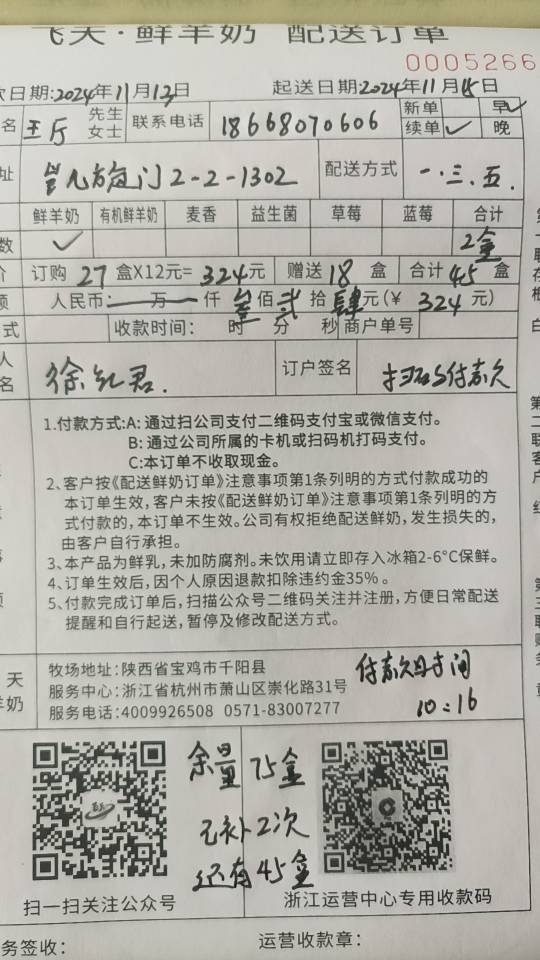 飞天·鲜羊奶 配送订单
0005266
款日期:2024年11月13日 起送日期:2024年11月15日
名 王斤 先生 女士 联系电话 18668070606 新单 早✓
续单✓ 晚
址 凯旋门2-2-1302 配送方式 一.三.五.
鲜羊奶 有机鲜羊奶 麦香 益生菌 草莓 蓝莓 合计
数 ✓ 2盒
价 订购27盒X12元=324元 赠送18盒 合计45盒
额 人民币:一万一仟叁佰贰拾肆元(¥324元)
式 收款时间: 时 分 秒 商户单号
人
名 徐红君. 订户签名 扫码付款
1.付款方式:A:通过扫公司支付二维码支付宝或微信支付。
B:通过公司所属的卡机或扫码机打码支付。
C:本订单不收取现金。
2、客户按《配送鲜奶订单》注意事项第1条列明的方式付款成功的
本订单生效,客户未按《配送鲜奶订单》注意事项第1条列明的方
式付款的,本订单不生效。公司有权拒绝配送鲜奶,发生损失的,
由客户自行承担。
3、本产品为鲜乳,未加防腐剂。未饮用请立即存入冰箱2-6°C保鲜。
4、订单生效后,因个人原因退款扣除违约金35%。
5、付款完成订单后,扫描公众号二维码关注并注册,方便日常配送
提醒和自行起送,暂停及修改配送方式。
天
羊奶
牧场地址:陕西省宝鸡市千阳县
服务中心:浙江省杭州市萧山区崇化路31号
服务电话:4009926508 0571-83007277
付款时间
10:16
余量 75盒
已补2次
还有45盒
扫一扫关注公众号 浙江运营中心专用收款码
务签收: 运营收款章: